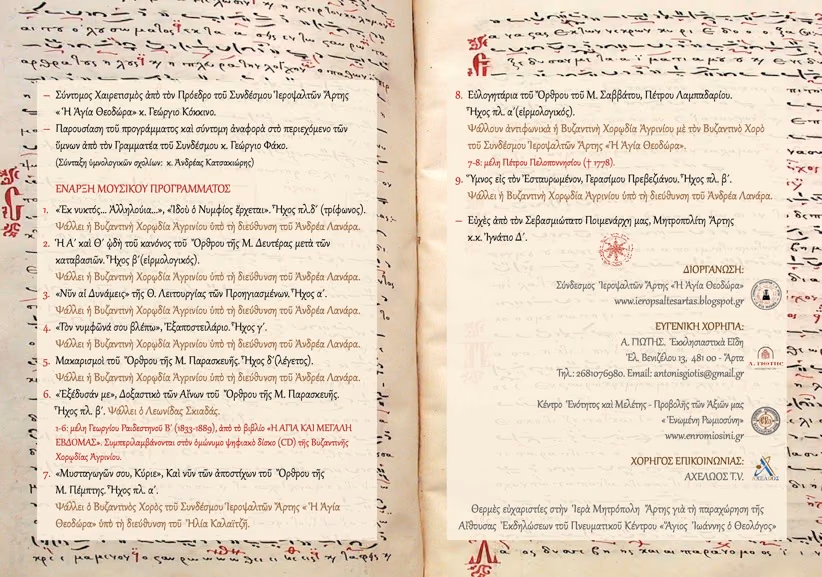 – Σύντομος Χαιρετισμὸς ἀπὸ τὸν Πρόεδρο τοῦ Συνδέσμου Ἱεροψαλτῶν Ἄρτης
«Ἡ Ἁγία Θεοδώρα» κ. Γεώργιο Κόκκινο.
– Παρουσίαση τοῦ προγράμματος καὶ σύντομη ἀναφορὰ στὸ περιεχόμενο τῶν
ὕμνων ἀπὸ τὸν Γραμματέα τοῦ Συνδέσμου κ. Γεώργιο Φάκο.
(Σύνταξη ὑμνολογικῶν σχολίων: κ. Ἀνδρέας Κατσακιώρης)
ΕΝΑΡΞΗ ΜΟΥΣΙΚΟΥ ΠΡΟΓΡΑΜΜΑΤΟΣ
1. «Ἐκ νυκτός... Ἀλληλούια...», «Ἰδοὺ ὁ Νυμφίος ἔρχεται». Ἦχος πλ.δ΄ (τρίφωνος).
Ψάλλει ἡ Βυζαντινὴ Χορῳδία Ἀγρινίου ὑπὸ τὴ διεύθυνση τοῦ Ἀνδρέα Λανάρα.
2. Ἡ Α΄ καὶ Θ΄ ᾠδὴ τοῦ κανόνος τοῦ Ὄρθρου τῆς Μ. Δευτέρας μετὰ τῶν
καταβασιῶν. Ἦχος β΄(εἱρμολογικός).
Ψάλλει ἡ Βυζαντινὴ Χορῳδία Ἀγρινίου ὑπὸ τὴ διεύθυνση τοῦ Ἀνδρέα Λανάρα.
3. «Νῦν αἱ Δυνάμεις» τῆς Θ. Λειτουργίας τῶν Προηγιασμένων. Ἦχος α΄.
Ψάλλει ἡ Βυζαντινὴ Χορῳδία Ἀγρινίου ὑπὸ τὴ διεύθυνση τοῦ Ἀνδρέα Λανάρα.
4. «Τὸν νυμφῶνά σου βλέπω», Ἐξαποστειλάριο. Ἦχος γ΄.
Ψάλλει ἡ Βυζαντινὴ Χορῳδία Ἀγρινίου ὑπὸ τὴ διεύθυνση τοῦ Ἀνδρέα Λανάρα.
5. Μακαρισμοὶ τοῦ Ὄρθρου τῆς Μ. Παρασκευῆς. Ἦχος δ΄(λέγετος).
Ψάλλει ἡ Βυζαντινὴ Χορῳδία Ἀγρινίου ὑπὸ τὴ διεύθυνση τοῦ Ἀνδρέα Λανάρα.
6. «Ἐξέδυσάν με», Δοξαστικὸ τῶν Αἴνων τοῦ Ὄρθρου τῆς Μ. Παρασκευῆς.
Ἦχος πλ. β΄. Ψάλλει ὁ Λεωνίδας Σκιαδάς.
1-6: μέλη Γεωργίου Ραιδεστηνοῦ Β΄ (1833-1889), ἀπὸ τὸ βιβλίο «Η ΑΓΙΑ ΚΑΙ ΜΕΓΑΛΗ
ΕΒΔΟΜΑΣ». Συμπεριλαμβάνονται στὸν ὁμώνυμο ψηφιακὸ δίσκο (CD) τῆς Βυζαντινῆς
Χορῳδίας Ἀγρινίου.
7. «Μυσταγωγῶν σου, Κύριε», Καὶ νῦν τῶν ἀποστίχων τοῦ Ὄρθρου τῆς
Μ. Πέμπτης. Ἦχος πλ. α΄.
Ψάλλει ὁ Βυζαντινὸς Χορὸς τοῦ Συνδέσμου Ἱεροψαλτῶν Ἄρτης «Ἡ Ἁγία
Θεοδώρα» ὑπὸ τὴ διεύθυνση τοῦ Ἠλία Καλαϊτζῆ.
8. Εὐλογητάρια τοῦ Ὄρθρου τοῦ Μ. Σαββάτου, Πέτρου Λαμπαδαρίου.
Ἦχος πλ. α΄(εἱρμολογικός).
Ψάλλουν ἀντιφωνικὰ ἡ Βυζαντινὴ Χορῳδία Ἀγρινίου μὲ τὸν Βυζαντινὸ Χορὸ
τοῦ Συνδέσμου Ἱεροψαλτῶν Ἄρτης «Ἡ Ἁγία Θεοδώρα».
7-8: μέλη Πέτρου Πελοποννησίου († 1778).
9. Ὕμνος εἰς τὸν Ἐσταυρωμένον, Γερασίμου Πρεβεζιάνου. Ἦχος πλ. β΄.
Ψάλλει ἡ Βυζαντινὴ Χορῳδία Ἀγρινίου ὑπὸ τὴ διεύθυνση τοῦ Ἀνδρέα Λανάρα.
– Εὐχὲς ἀπὸ τὸν Σεβασμιώτατο Ποιμενάρχη μας, Μητροπολίτη Ἄρτης
κ.κ. Ἰγνάτιο Δ΄.
ΔΙΟΡΓΑΝΩΣΗ:
Σύνδεσμος Ἱεροψαλτῶν Ἄρτης «Ἡ Ἁγία Θεοδώρα»
www.ieropsaltesartas.blogspot.gr
ΕΥΓΕΝΙΚΗ ΧΟΡΗΓΙΑ:
Α. ΓΙΩΤΗΣ. Ἐκκλησιαστικὰ Εἴδη
Ἐλ. Βενιζέλου 13, 481 00 - Ἄρτα
Α. ΓΙΩΤΗΣ
Τηλ.: 2681076980. Email: antonisgiotis@gmail.gr
Κέντρο Ἑνότητος καὶ Μελέτης - Προβολῆς τῶν Ἀξιῶν μας
«Ἑνωμένη Ρωμιοσύνη»
www.enromiosini.gr
ΧΟΡΗΓΟΣ ΕΠΙΚΟΙΝΩΝΙΑΣ:
ΑΧΕΛΩΟΣ T.V.
ΑΧΕΛΩΟΣ
Θερμὲς εὐχαριστίες στὴν Ἱερὰ Μητρόπολη Ἄρτης γιὰ τὴ παραχώρηση τῆς
Αἴθουσας Ἐκδηλώσεων τοῦ Πνευματικοῦ Κέντρου «Ἅγιος Ἰωάννης ὁ Θεολόγος»